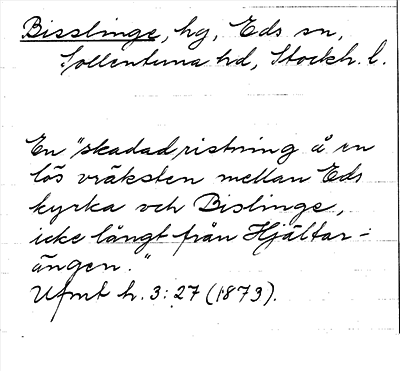 Bisslinge, hg, Eds sn,
Sollentuna hd, Stockh. l.
En "skadad ristning å en
lös vräksten mellan Eds
kyrka och Bislinge,
icke långt från Hjältar-
ängen."
Ufmt h. 3:27 (1873).